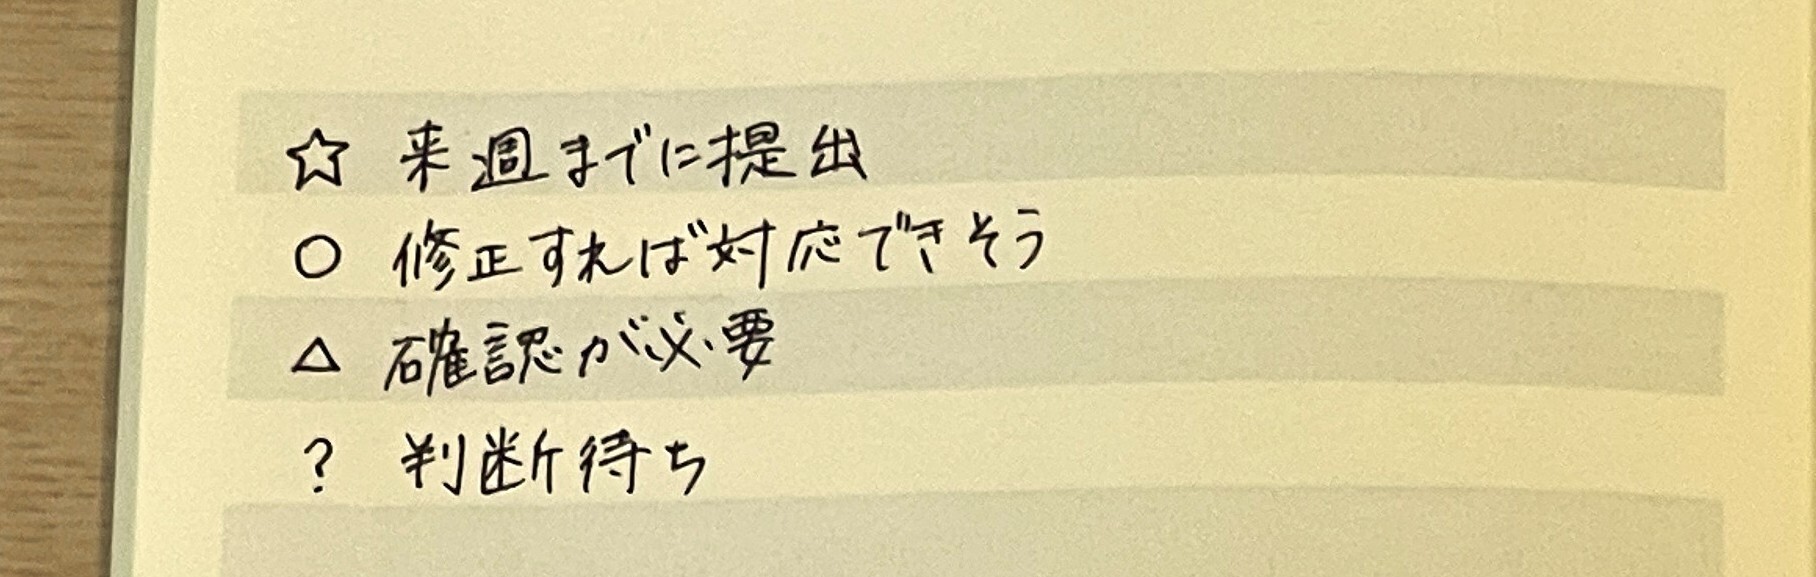 ☆ 来週までに提出
○ 修正すれば対応できそう
△ 確認が必要
? 判断待ち